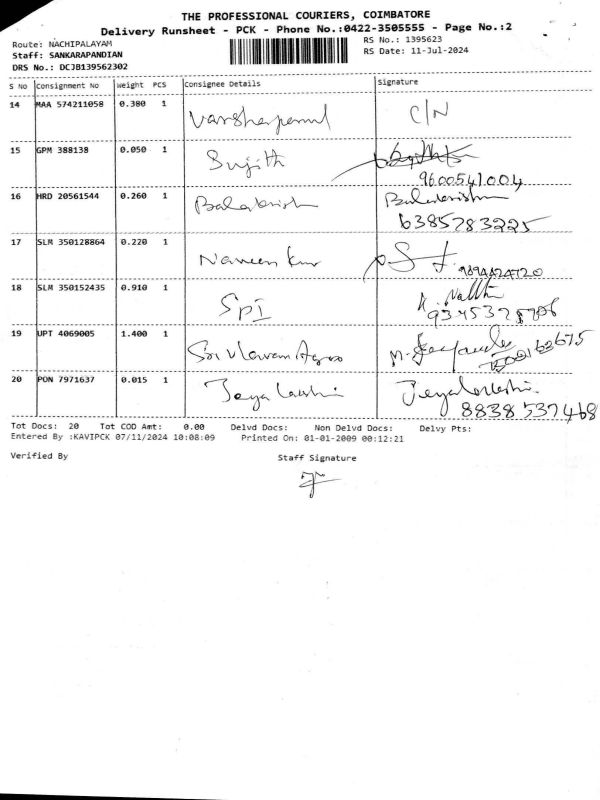 THE PROFESSIONAL COURIERS, COIMBATORE
Delivery Runsheet - PCK - Phone No.:0422-3505555 - Page No.:2
Route: NACHIPALAYAM
RS No.: 1395623
Staff: SANKARAPANDIAN
RS Date: 11-Jul-2024
DRS No.: DCJB139562302
S No Consignment No Weight PCS Consignee Details Signature
14 MAA 574211058 0.380 1 C/N
15 GPM 388138 0.050 1 Sujith
9600541004
16 HRD 20561544 0.260 1 Balakrish Balakrishn
6385783225
17 SLM 350128864 0.220 1 Naveen kur
18 SLM 350152435 0.910 1 SPI
19 UPT 4069005 1.400 1 Sri
20 PON 7971637 0.015 1 Jeya Lakshmi Jeyalakshmi
8838537468
Tot Docs: 20 Tot COD Amt: 0.00 Delvd Docs: Non Delvd Docs: Delvy Pts:
Entered By :KAVIPCK 07/11/2024 10:08:09 Printed On: 01-01-2009 00:12:21
Verified By Staff Signature